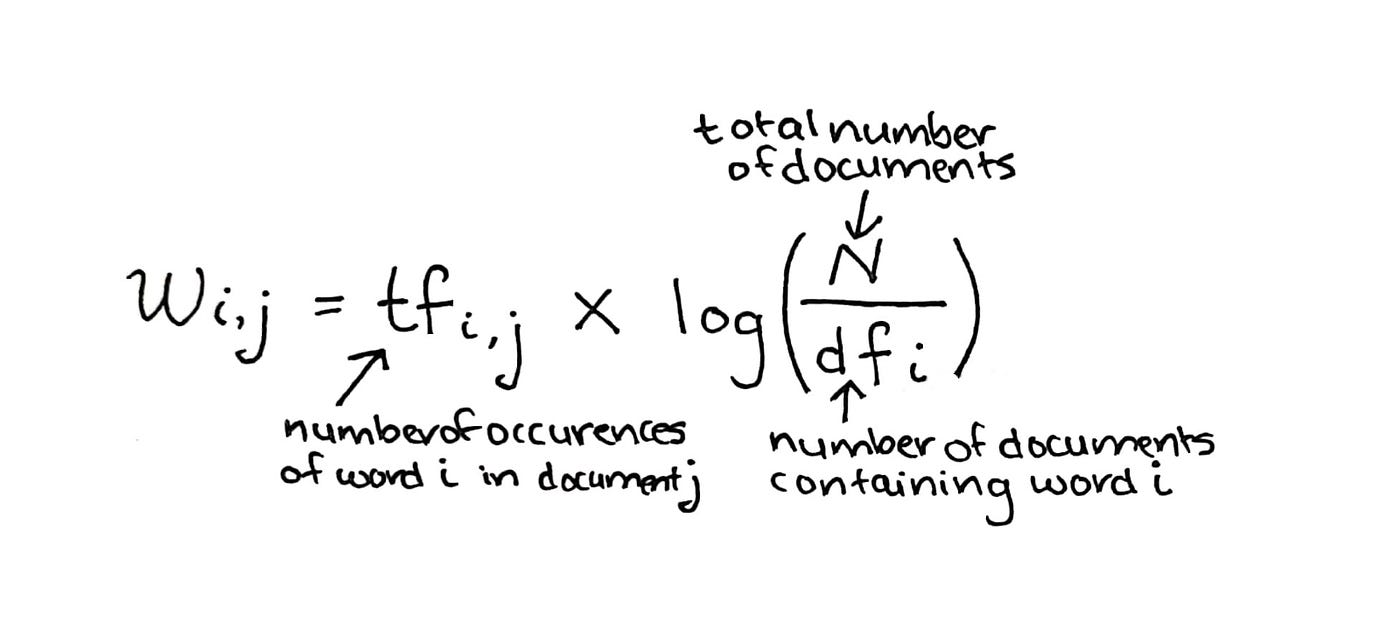 total number
of documents
N
Wi,j = tfi,j × log( )
dfi
number of occurences
of word i in document j
number of documents
containing word i